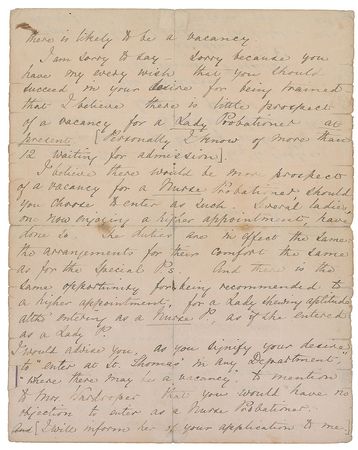 there is likely to be a vacancy
I am sorry to say - sorry because you
have my every wish that you should
succeed in your desire for being trained
that I believe there is little prospect
of a vacancy for a Lady Probationer at
present [Personally I know of more than
12 waiting for admission].
I believe there would be more prospect
of a vacancy for a Nurse Probationer should
you choose to enter as such. Several ladies,
now enjoying a higher appointment, have
done so. The duties are in effect the same
the arrangements for their comfort the same
as for the Special P's. And there is the
same opportunity for being recommended to
a higher appointment, for a Lady shewing aptitude
altho' entering as a Nurse P. as if she entered
as a Lady P.
I would advise you, as you signify your desire
to "enter at St. Thomas' in any Department",
"where there may be a vacancy" to mention
to Mrs. Wardroper that you would have no
objection to enter as a Nurse Probationer.
and [I will inform her of your application to me.